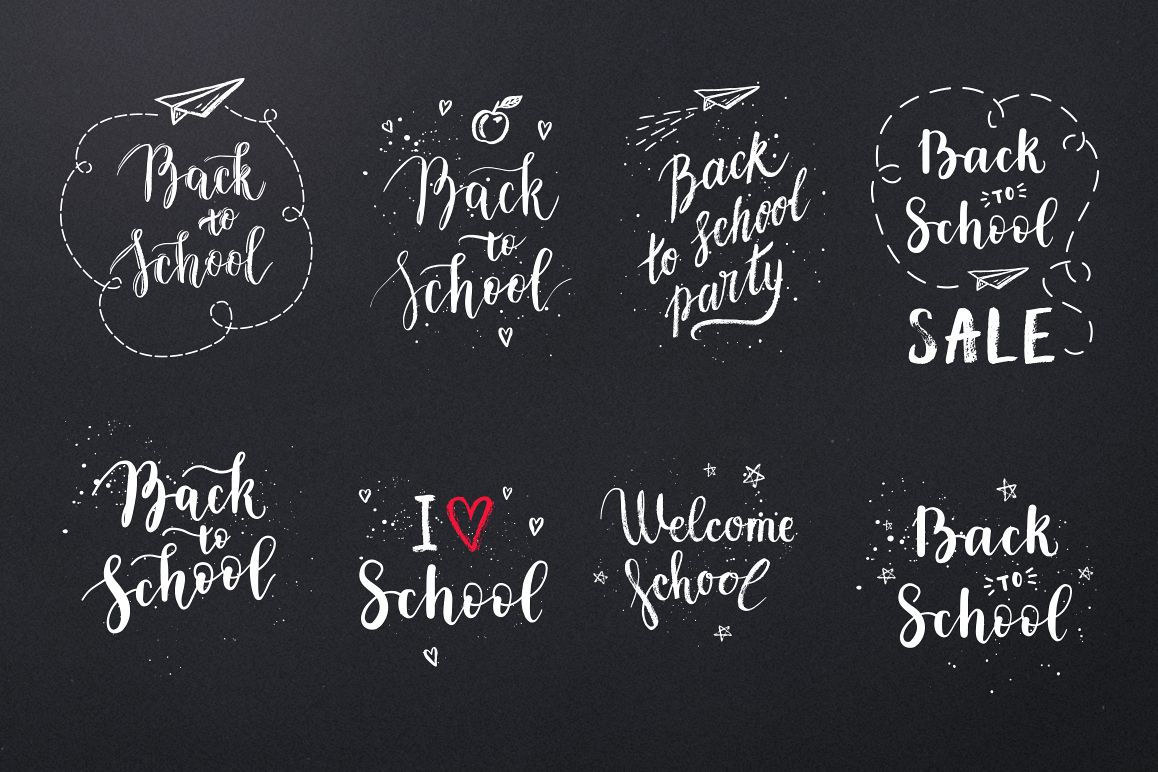 Back
to
School
Back
to
School
Back
to school
party
Back
TO
School
SALE
Back
to
School
I
School
Welcome
School
Back
TO
School